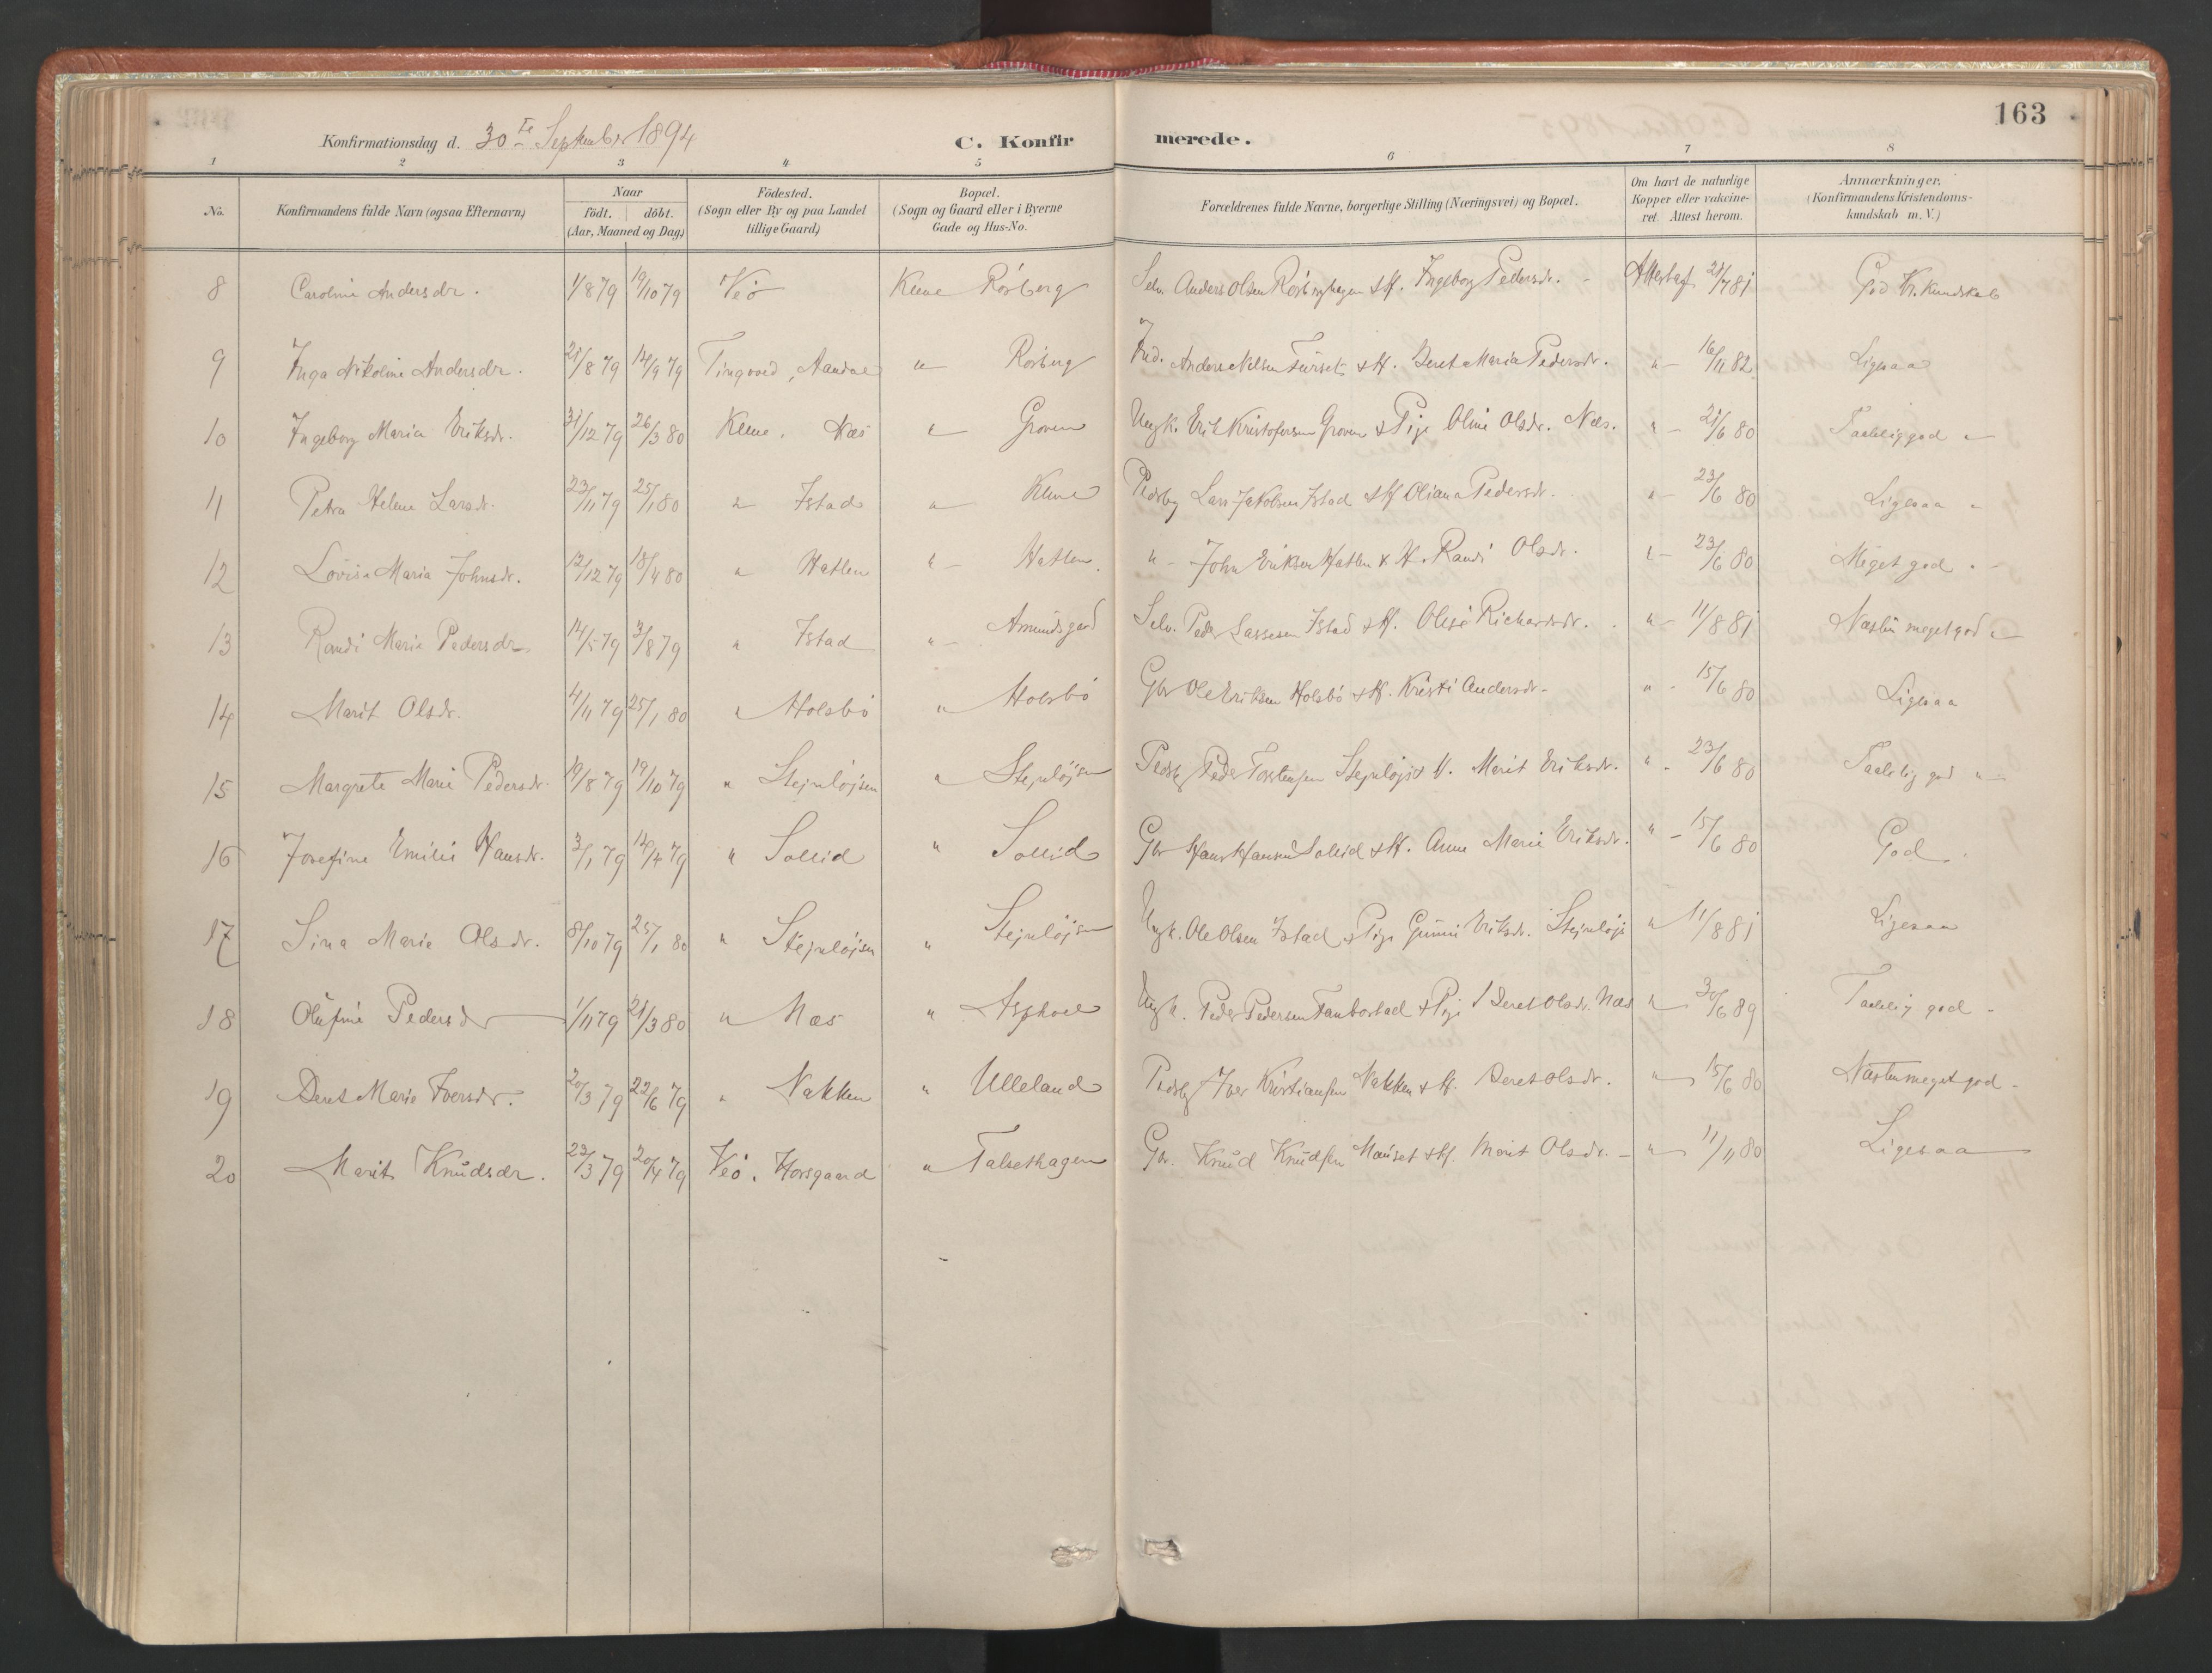 163
Konfirmationsdag d. 30te September 1894
C. Konfirmerede.
1 2 3 4 5 6 7 8
No. Konfirmandens fulde Navn (ogsaa Efternavn) Naar födt. döbt. (Aar, Maaned og Dag) Födested. (Sogn eller By og paa Landet tillige Gaard) Bopæl. (Sogn og Gaard eller i Byerne Gade og Hus-No. Forældrenes fulde Navne, borgerlige Stilling (Næringsvei) og Bopæl. Om havt de naturlige Kopper eller vakcineret. Attest herom. Anmærkninger, (Konfirmandens Kristendomskundskab m. V.)
8 Caroline Andersdr. 1/8 79 19/10 79 Veö Kleve Rösberg Selv. Anders Olsen Rösberghagen & H. Ingeborg Pedersdr. - Attest af 21/7 81 God Kr. Kundskab
9 Inga Nikoline Andersdr. 21/8 79 14/9 79 Tingvoed, " Rösberg Ind. Anders Nilsen Furset & H. Beret Maria Pedersdr. " - 16/11 82 Ligesaa
10 Ingeborg Maria Eriksdr. 31/12 79 26/3 80 Kleve, Næs " Groven Ungk. Erik Kristofersen Groven & Pige Oline Olsdr. Næs. " - 21/6 80 Taalelig god "
11 Petra Helene Larsdr. 23/11 79 25/1 80 " Istad " Kleve Pladsbg Lars Jakobsen Istad & H Oliana Pedersdr. " - 23/6 80 Ligesaa "
12 Lovisa Maria Johnsdr. 12/12 79 18/4 80 " Hatlen " - Hatlen. " - John Eriksen Hatlen & H. Randi Olsdr. " - 23/6 80 Meget god " -
13 Randi Marie Pedersdr 14/5 79 3/8 79 " Istad " - Amundsgard Selv. Peder Larssen Istad & H. Olise Richardsdr. " - 11/8 81 Næsten meget god "
14 Marit Olsdr. 4/11 79 25/1 80 " Holsbö " Holsbö Gbr Ole Eriksen Holsbö & H. Kristi Andersdr. " - 15/6 80 Ligesaa
15 Margrete Marie Pedersdr. 19/8 79 19/10 79 " Stejnlöjsen " Stejnlöjsen Pladsbg Peder Torstensen Stejnlöjs & H. Marit Eriksdr. " - 23/6 80 Taalelig god " -
16 Josefine Emilie Hansdr. 3/1 79 14/4 79 " Sollid " Sollid Gbr Hans Hansen Sollid & H. Anne Marie Eriksdr. " - 15/6 80 God
17 Sina Marie Olsdr. 8/10 79 25/1 80 " Stejnlöjsen " Stejnlöjsen Ungk. Ole Olsen Istad & Pige Guruni Eriksdr. Stejnlöjs " 11/8 81 Ligesaa
18 Olufine Pedersdr 1/11 79 21/3 80 " Næs " Ungk. Peder Pedersen & Pige Beret Olsdr. Næs " 30/6 89 Taalelig god -
19 Beret Marie Iversdr. 20/3 79 22/6 79 " Nakken " Ulleland Pladsbg Iver Kristiansen Nakken & H. Beret Olsdr. " 15/6 80 Næsten meget god -
20 Marit Knudsdr. 22/3 79 20/4 79 Veö. Horsgaard " Talsethagen Gbr. Knud Knudsen Mauset & H. Marit Olsdr. - " 11/11 80 Ligesaa